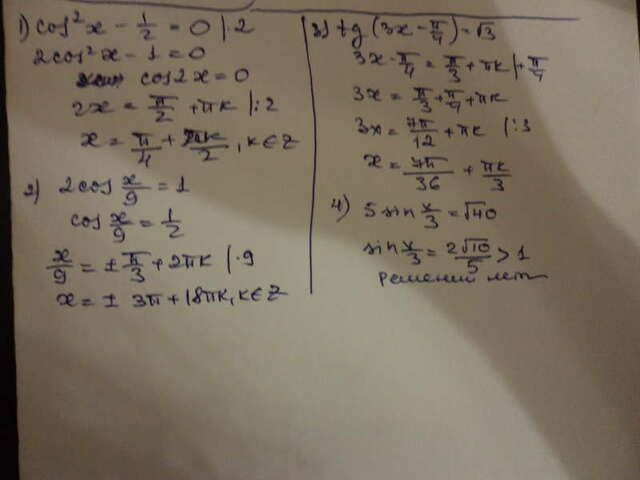 1) cos²x - 1/2 = 0 | 2
2cos²x - 1 = 0
cos2x = 0
2x = π/2 + πk | :2
x = π/4 + πk/2, k∈Z
2) 2cos x/9 = 1
cos x/9 = 1/2
x/9 = ± π/3 + 2πk | ·9
x = ± 3π + 18πk, k∈Z
3) tg (3x - π/4) = √3
3x - π/4 = π/3 + πk | + π/4
3x = π/3 + π/4 + πk
3x = 7π/12 + πk | :3
x = 7π/36 + πk/3
4) 5 sin x/3 = √40
sin x/3 = 2√10/5 > 1
Решений нет